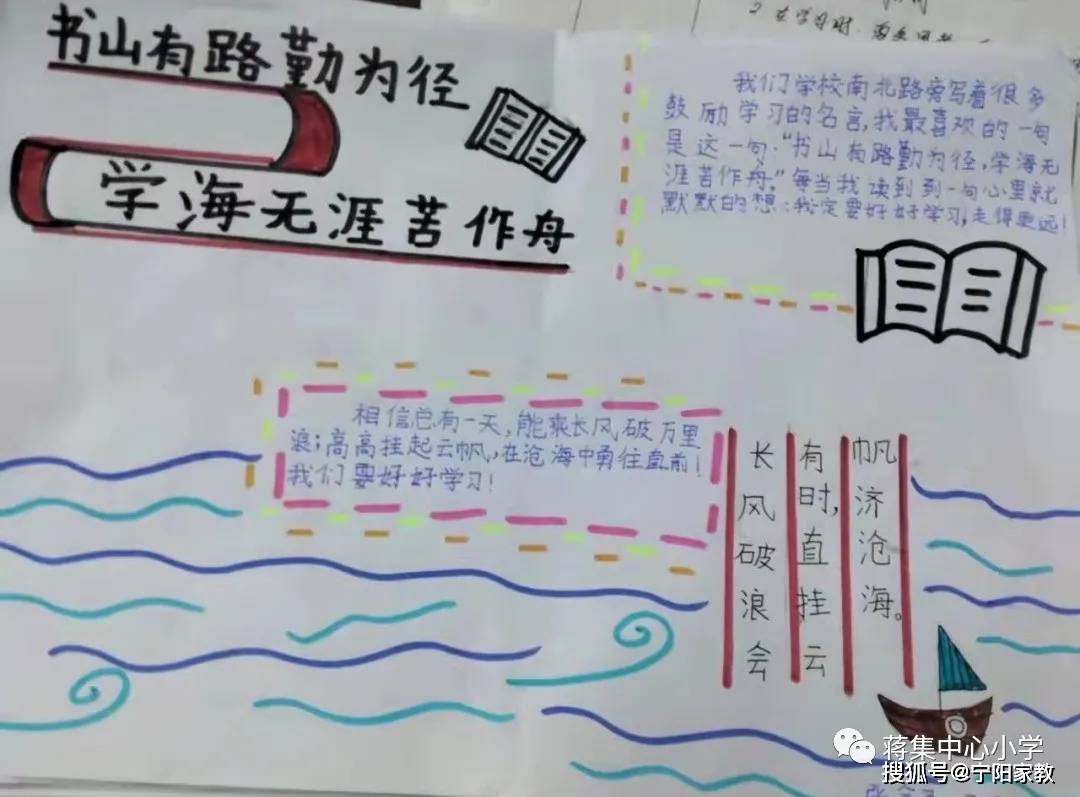 书山有路勤为径
学海无涯苦作舟
我们学校南北路旁写着很多
鼓励学习的名言,我最喜欢的一句
是这一句:“书山有路勤为径,学海无
涯苦作舟。”每当我读到到一句心里就
默默的想:我定要好好学习,走得更远!
相信总有一天,能乘长风破万里
浪;高高挂起云帆,在沧海中勇往直前!
我们要好好学习!
长风破浪会
有时,直挂云
帆济沧海。
蒋集中心小学
搜狐号@宁阳家教